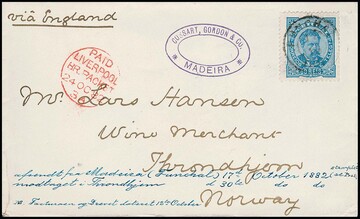 viâ England
COSSART, GORDON & CO.
MADEIRA
PAID
LIVERPOOL
BR. PACKET
24 OC 82
Mr. Lars Hansen
Wine Merchant
Throndhjem
Norway
afsendt fra Madeira (Funchal) 17de October 1882
modtaget i Trondhjem d 30te do do